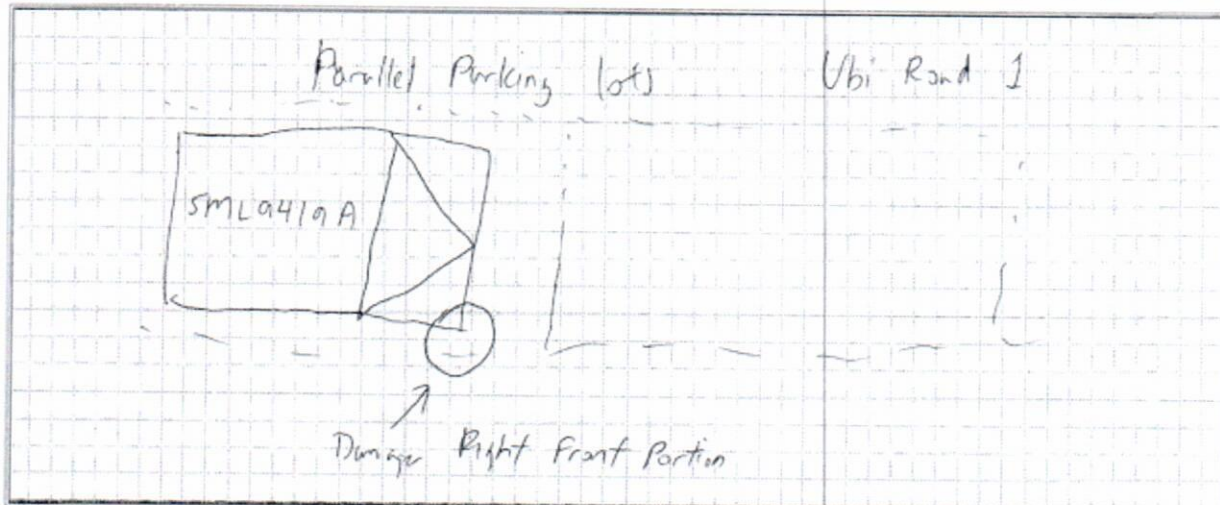 Parallel Parking lots Ubi Road 1
SML9419A
Damage Right Front Portion